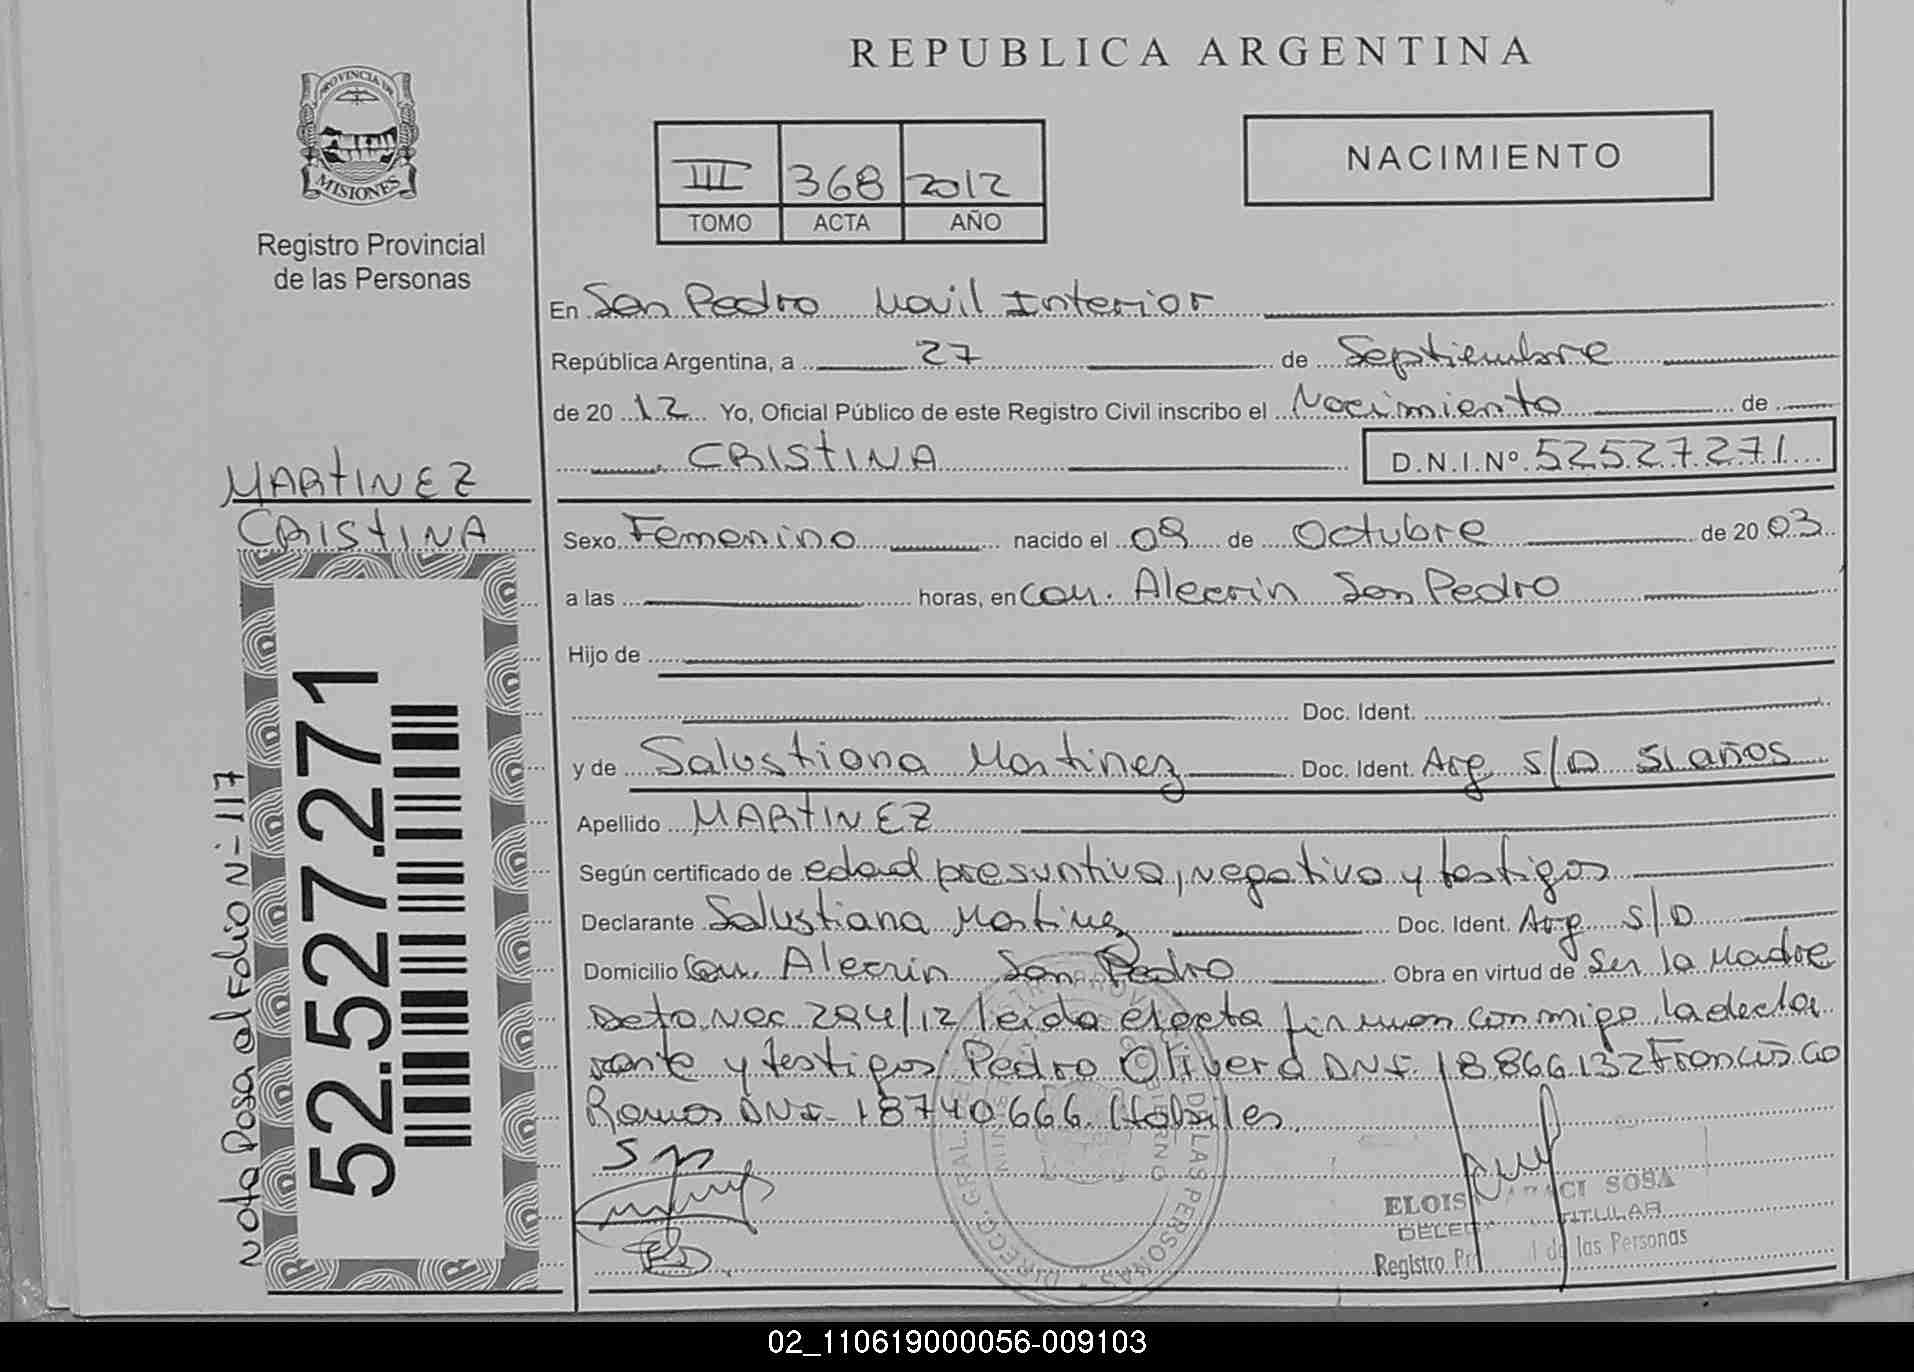 REPUBLICA ARGENTINA
PROVINCIA DE
MISIONES
Registro Provincial
de las Personas
III 368 2012
TOMO ACTA AÑO
NACIMIENTO
En San Pedro Movil Interior
República Argentina, a 27 de Septiembre
de 20 12 Yo, Oficial Público de este Registro Civil inscribo el Nacimiento de
CRISTINA D.N.I.Nº 52527271
MARTINEZ
CRISTINA
Sexo Femenino nacido el 08 de Octubre de 20 03
a las horas, en Com. Alecrin San Pedro
Hijo de
Doc. Ident.
y de Salustiana Martinez Doc. Ident. Arg S/D 51 años
Apellido MARTINEZ
Según certificado de edad presuntiva, negativa y testigos
Declarante Salustiana Martinez Doc. Ident. Arg S/D
Domicilio Com. Alecrin San Pedro Obra en virtud de Ser la Madre
294/12 leida el acta firman conmigo la decla
rante y testigos Pedro Olivera DNI. 18.866.132 Francisco
Ramos DNI. 18740.666 Habiles.
52.527.271
Nota Pasa al Folio Nº 117
DIRECG. GRAL. DE LAS PERSONAS
ELOIS SOSA
TITULAR
Registro de las Personas
02_110619000056-009103